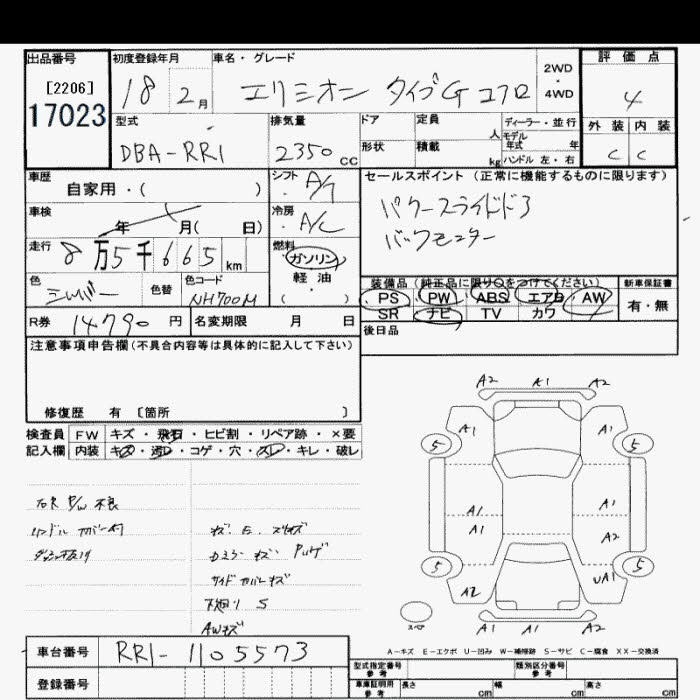 出品番号 初度登録年月 車名・グレード 評価点
[2206] 18 2月 エリシオン タイプG エアロ 2WD・4WD 4
17023
型式 排気量 ドア 定員 人 ディーラー・並行 外装 内装
DBA-RR1 2350cc 形状 積載 kg モデル年式 年 ハンドル 左・右 C C
車歴 シフト A/T セールスポイント(正常に機能するものに限ります)
自家用・( ) パワースライドドア
車検 年 月( 日) 冷房 A/C バックモニター
走行 8万5千665km 燃料 ガソリン
軽油
( )
色 シルバー 色替 色コード NH700M
装備品(純正品に限り○をつけてください) 新車保証書
PS PW ABS エアB AW 有・無
SR ナビ TV カワ
R券 14790円 名変期限 月 日 後日品
注意事項申告欄(不具合内容等は具体的に記入して下さい)
修復歴 有 [箇所 ]
検査員 FW キズ・飛石・ヒビ割・リペア跡・×要
記入欄 内装 キズ・汚レ・コゲ・穴・スレ・キレ・破レ
右R P/W 不良
ハンドル カバー付
キズ E スリキズ
サイド カバーキズ
下廻り S
AWキズ
A2 A1 A2
A1 A1
5 5
A1 A1
A1 A2
5 5
A2 UA1
A1 A1 A2
A-キズ E-エクボ U-凹み W-補修跡 S-サビ C-腐食 XX-交換済
車台番号 RR1-1105573
登録番号
型式指定番号 参考 類別区分番号 参考
車庫証明用 参考 長さ cm 幅 cm 高さ cm